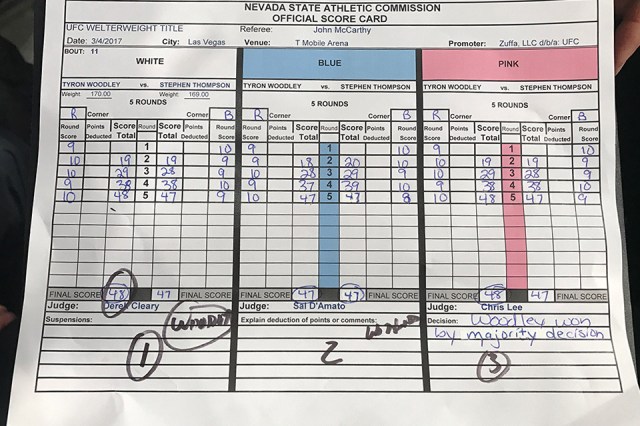 NEVADA STATE ATHLETIC COMMISSION
OFFICIAL SCORE CARD
UFC WELTERWEIGHT TITLE Referee: John McCarthy
Date: 3/4/2017 City: Las Vegas Venue: T Mobile Arena Promoter: Zuffa, LLC d/b/a: UFC
BOUT: 11
WHITE BLUE PINK
TYRON WOODLEY vs. STEPHEN THOMPSON TYRON WOODLEY vs. STEPHEN THOMPSON TYRON WOODLEY vs. STEPHEN THOMPSON
Weight 170.00 Weight: 169.00
5 ROUNDS 5 ROUNDS 5 ROUNDS
R Corner Corner B R Corner Corner B R Corner Corner B
Round Score Points Deducted Score Total Round Score Total Points Deducted Round Score Round Score Points Deducted Score Total Round Score Total Points Deducted Round Score Round Score Points Deducted Score Total Round Score Total Points Deducted Round Score
9 1 10 9 1 10 9 1 10
10 19 2 19 9 9 18 2 20 10 10 19 2 19 9
10 29 3 28 9 10 28 3 29 9 10 29 3 28 9
9 38 4 38 10 9 37 4 39 10 9 38 4 38 10
10 48 5 47 9 10 47 5 47 8 10 48 5 47 9
FINAL SCORE 48 47 FINAL SCORE FINAL SCORE 47 47 FINAL SCORE FINAL SCORE 48 47 FINAL SCORE
Judge: Derek Cleary Judge: Sal D'Amato Judge: Chris Lee
Suspensions: Explain deduction of points or comments: Decision: Woodley won
by majority decision
1 2 3